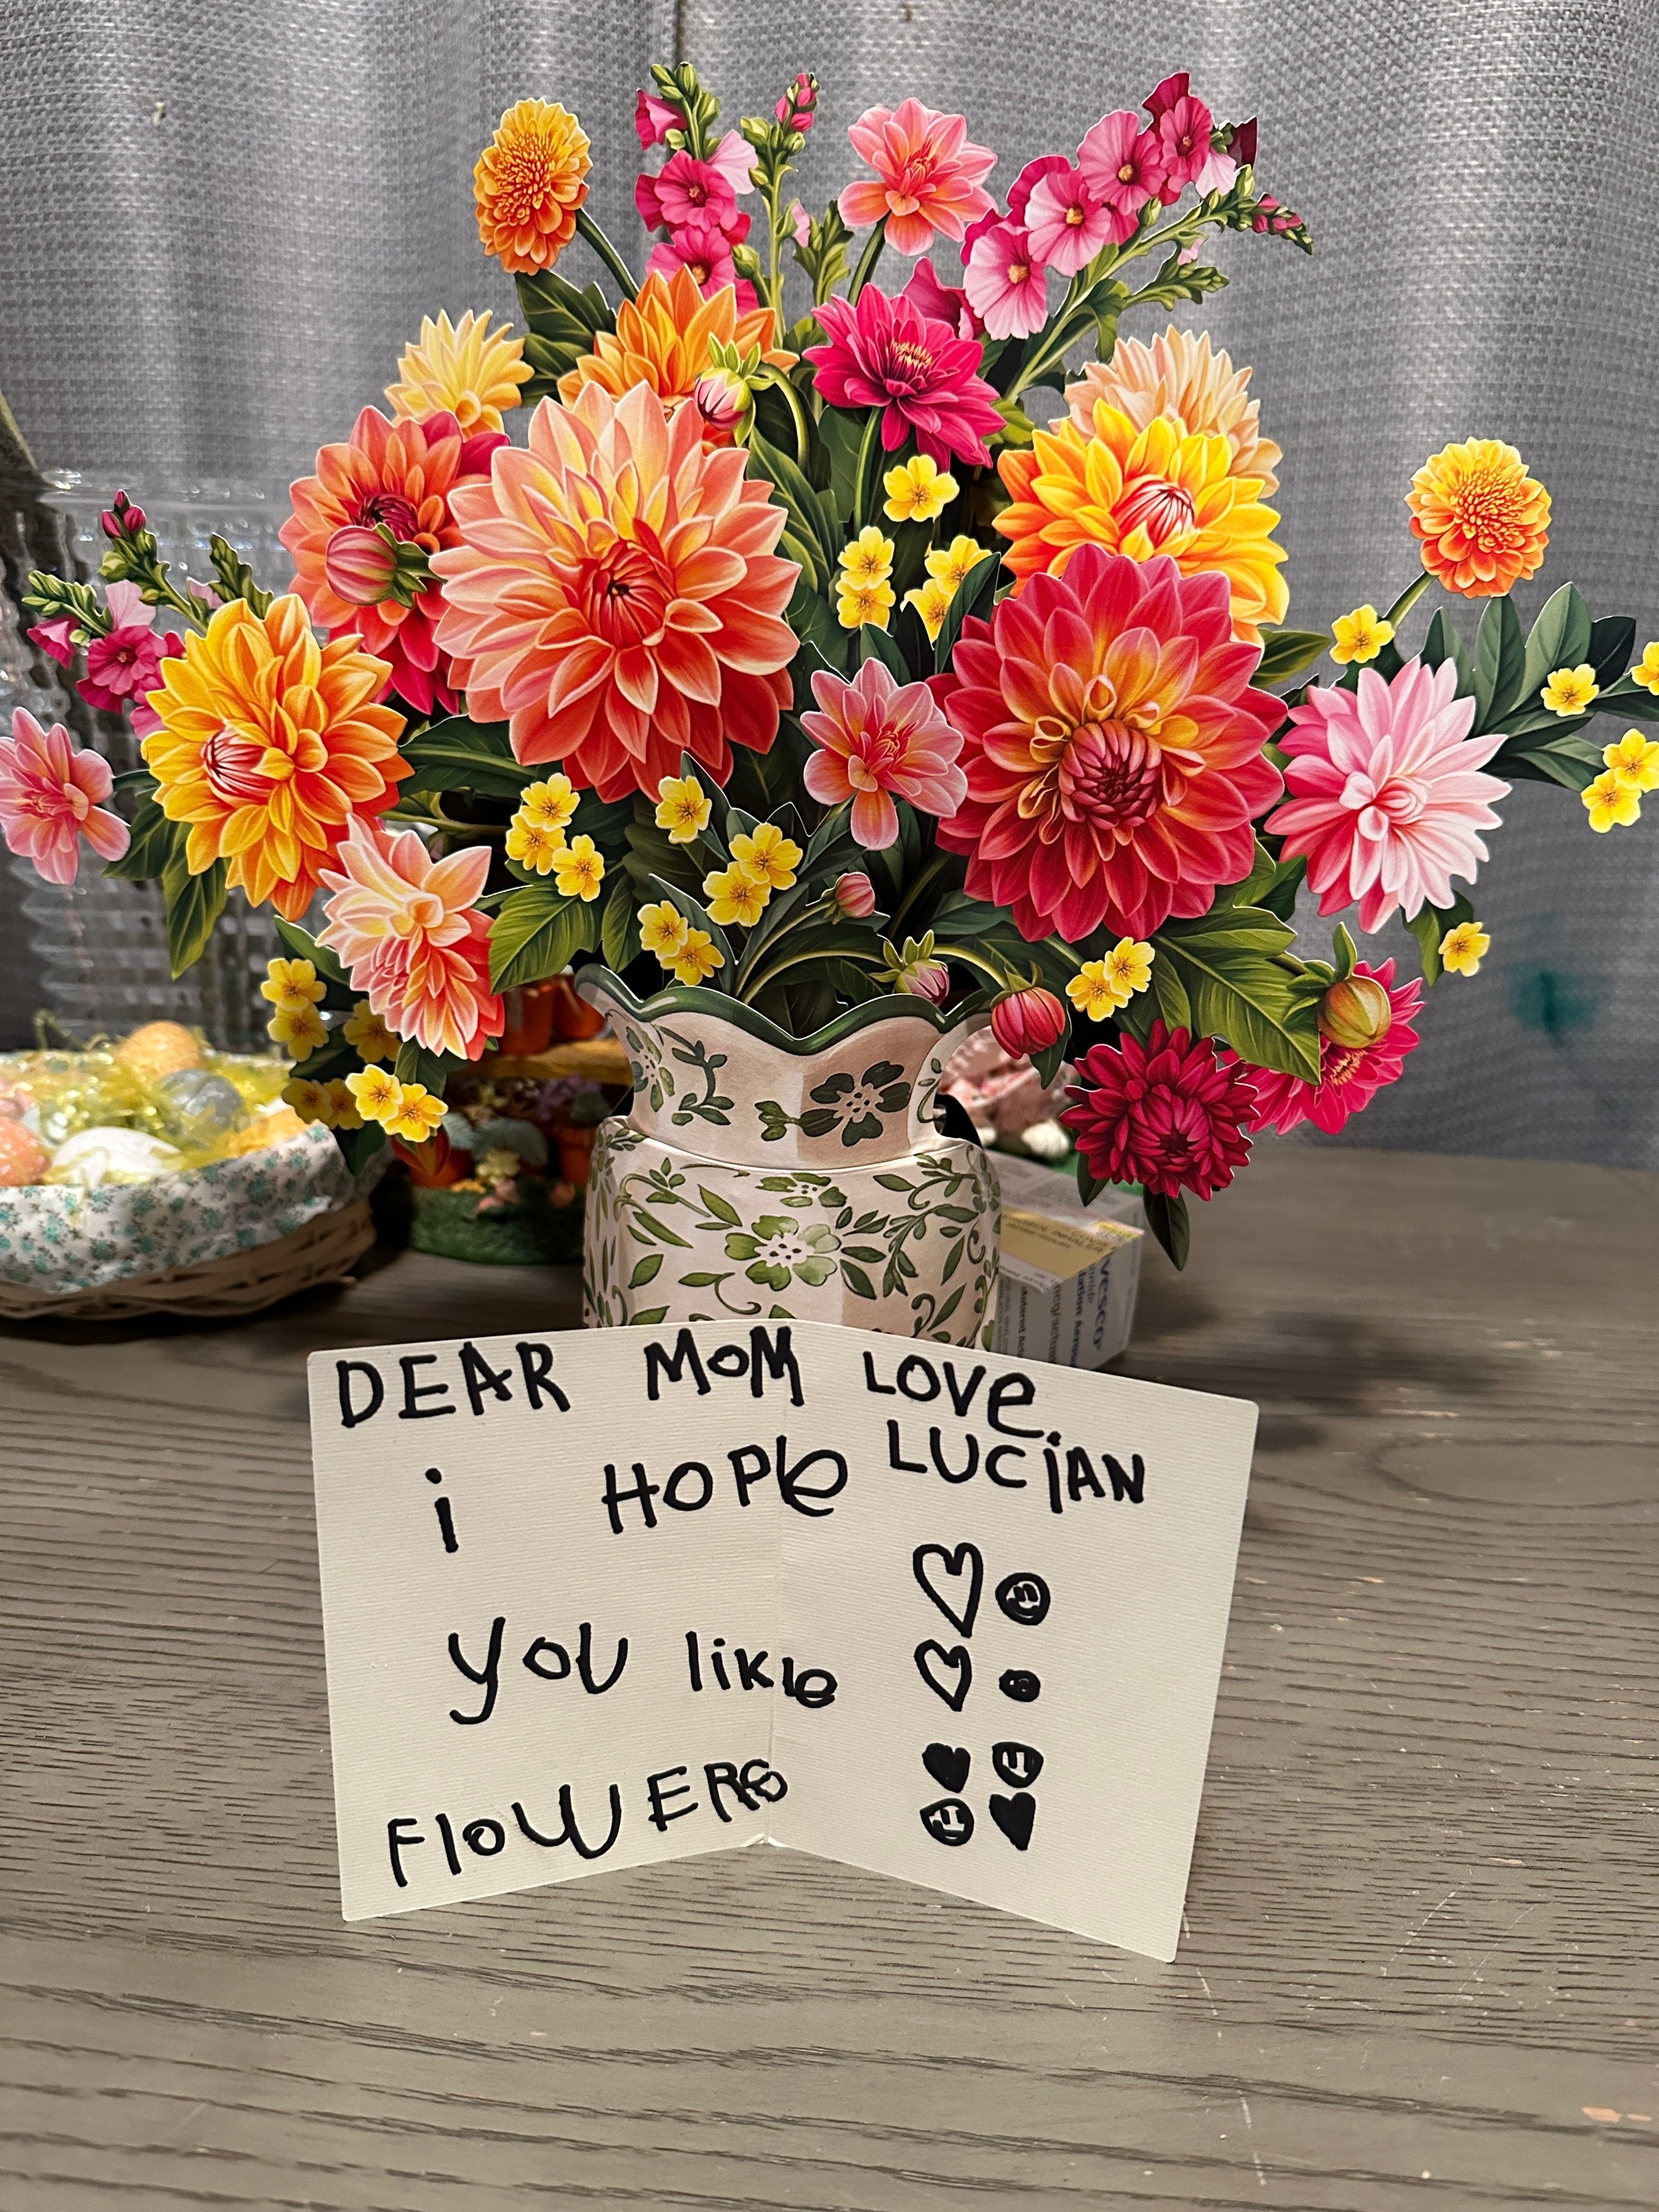 DEAR MOM
i HOPE
YOU like
FlOWERS
LOVe
LUCiAN